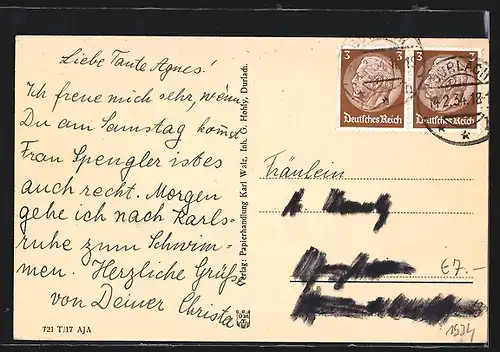 Liebe Tante Agnes!
Ich freue mich sehr, wenn
Du am Samstag kommst
Frau Spengler ist es
auch recht. Morgen
gehe ich nach Karls-
ruhe zum Schwim-
men. Herzliche Grüße
von Deiner Christa
721 T/17 AJA
Verlag: Papierhandlung Karl Walz, Inh. G. Hohly, Durlach.
3
Deutsches Reich
3
Deutsches Reich
DURLACH
14.2.34.18
Fräulein
67.-
1934